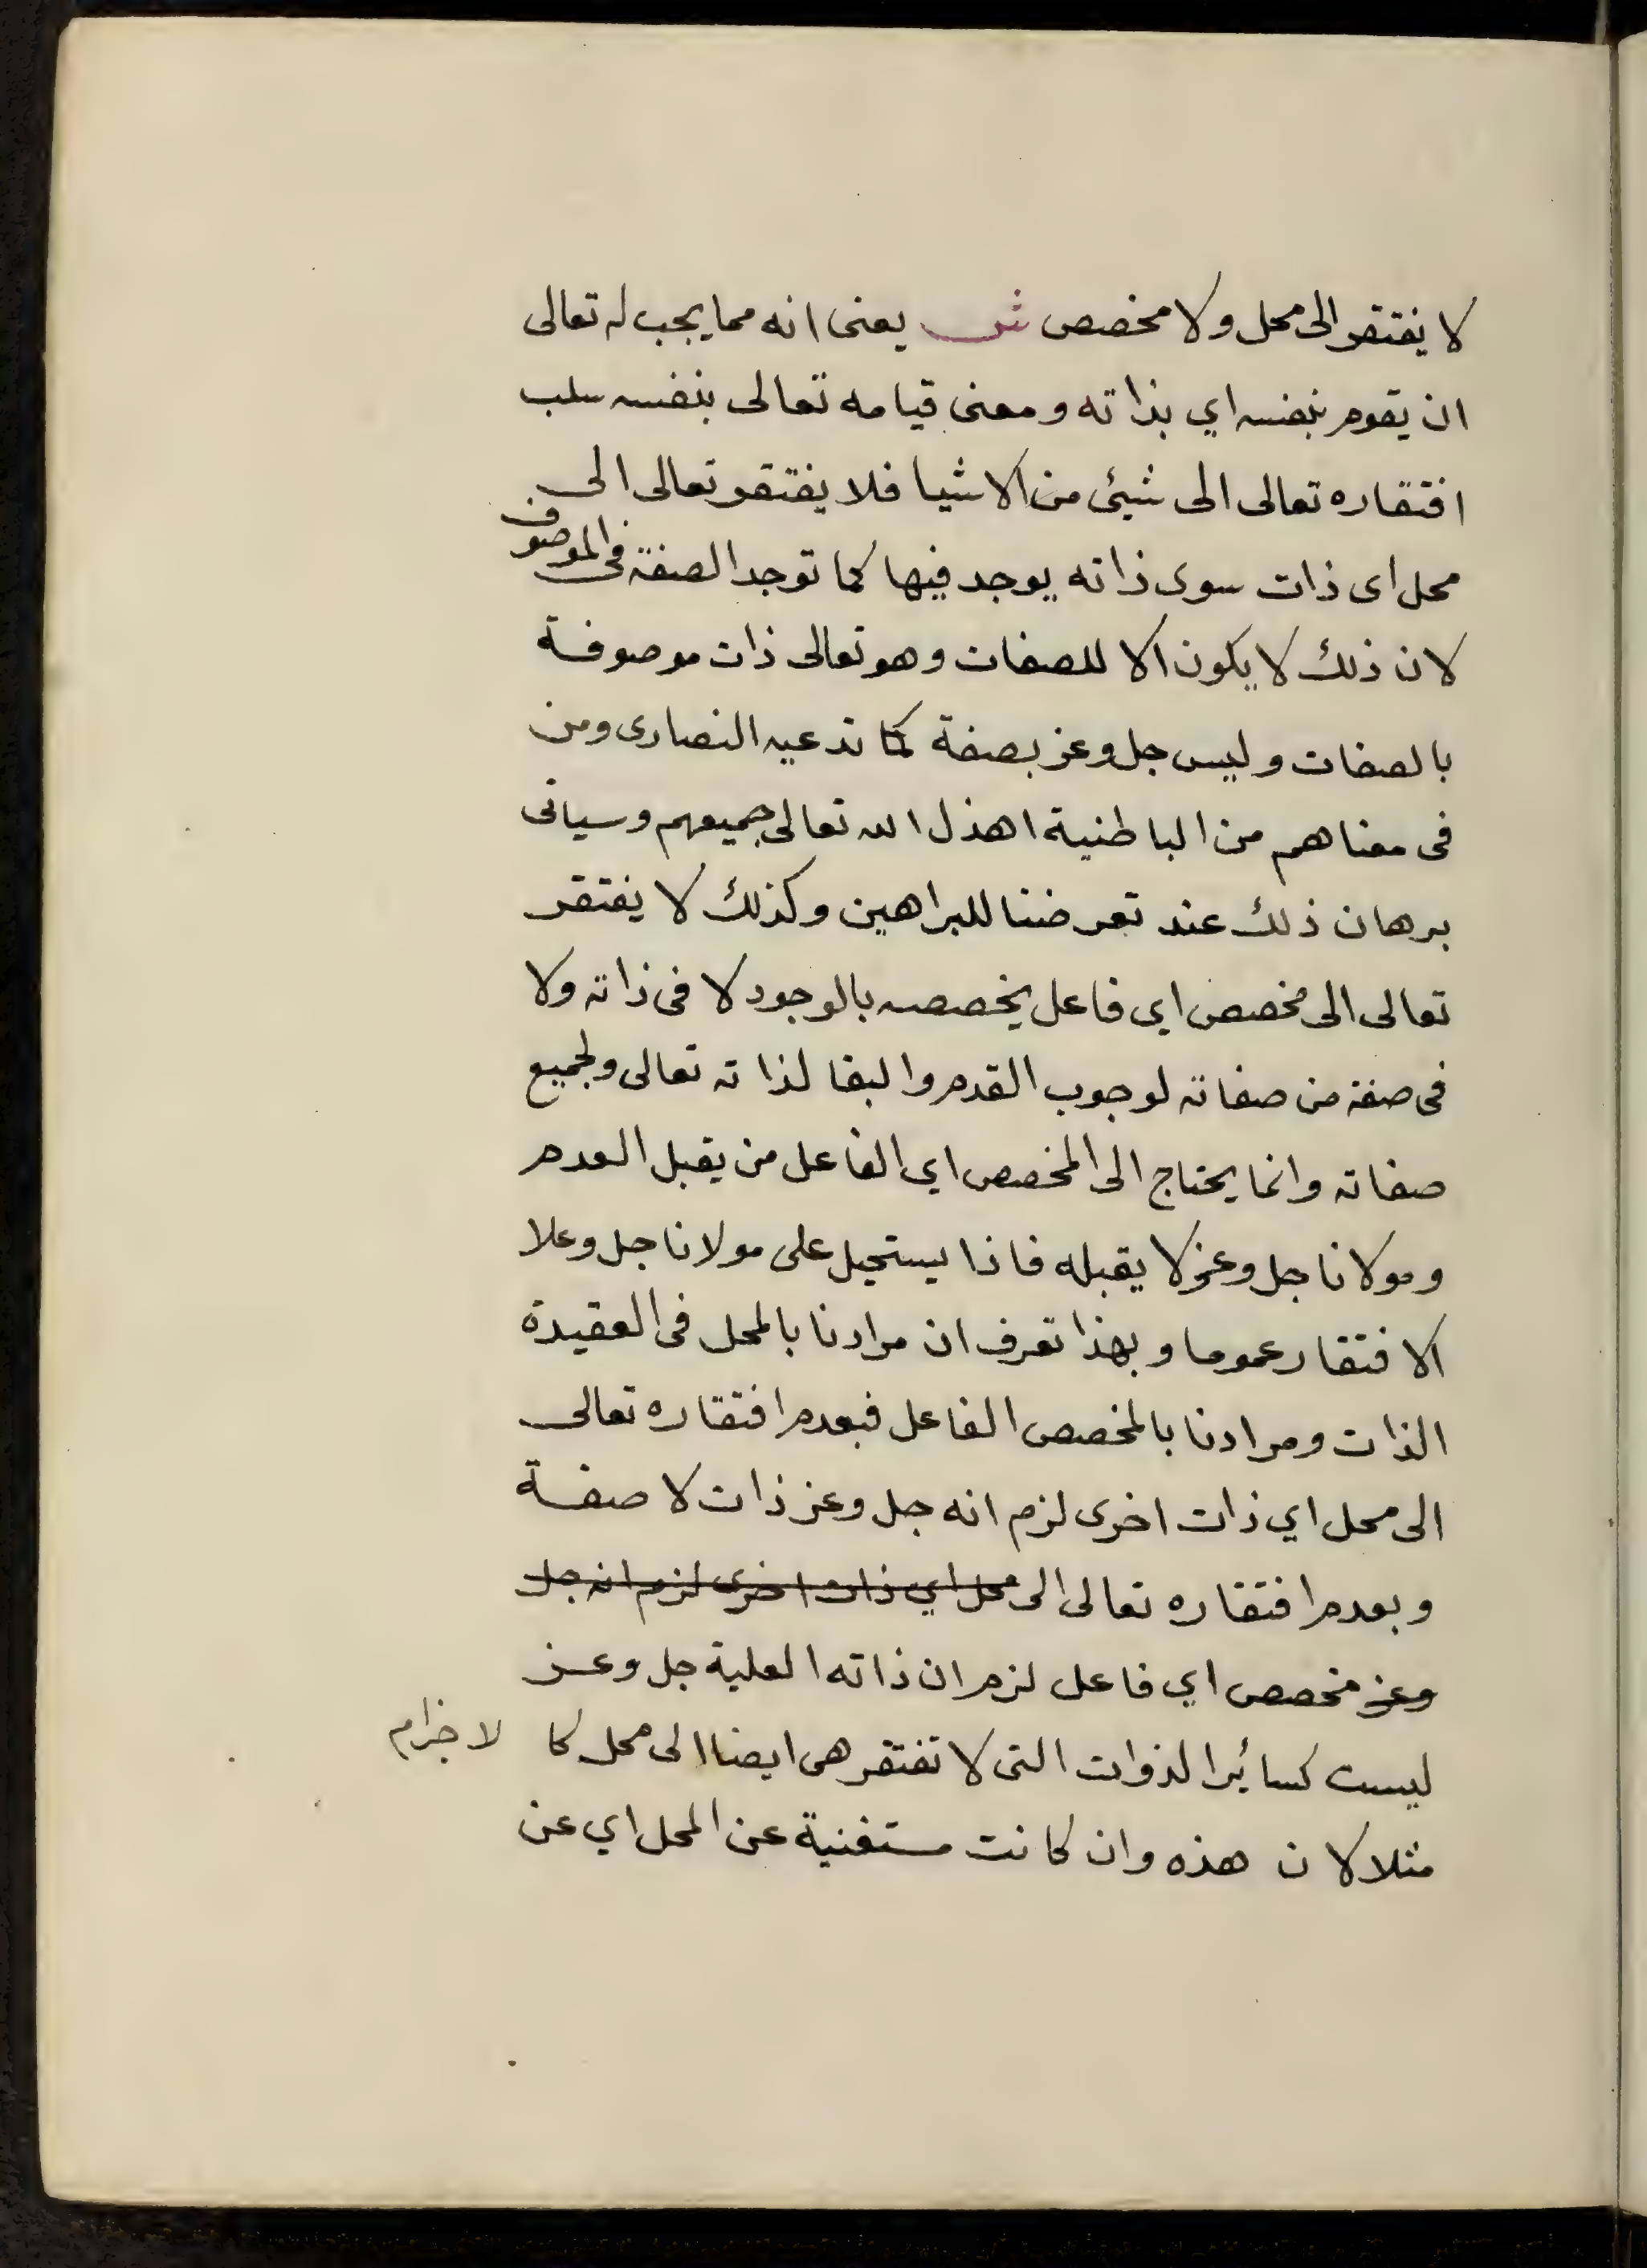 لا يفتقر الى محل ولا مخصص ش يعنى انه مما يجب له تعالى
ان يقوم بنفسه اي بذاته ومعنى قيامه تعالى بنفسه سلب
افتقاره تعالى الى شيئ من الاشيا فلا يفتقر تعالى الى
محل اى ذات سوى ذاته يوجد فيها كما توجد الصفة فى الموصوف
لان ذلك لا يكون الا للصفات وهو تعالى ذات موصوفة
بالصفات وليس جل وعز بصفة كما تدعيه النصارى ومن
فى معناهم من الباطنية اهذل الله تعالى جميعهم وسياتى
برهان ذلك عند تعرضنا للبراهين وكذلك لا يفتقر
تعالى الى مخصص اي فاعل يخصصه بالوجود لا فى ذاته ولا
فى صفة من صفاته لوجوب القدم والبقا لذاته تعالى ولجميع
صفاته وانما يحتاج الى المخصص اي الفاعل من يقبل العدم
ومولانا جل وعز لا يقبله فاذا يستحيل على مولانا جل وعلا
الافتقار عموما وبهذا تعرف ان مرادنا بالمحل فى العقيدة
الذات ومرادنا بالمخصص الفاعل فبعدم افتقاره تعالى
الى محل اي ذات اخرى لزم انه جل وعز ذات لا صفة
وبعدم افتقاره تعالى الى محل اي ذات اخرى لزم انه جل
وعز مخصص اي فاعل لزم ان ذاته العلية جل وعز
ليست كسائر الذوات التى لا تفتقر هى ايضا الى محل كا لاجرام
مثلا لان هذه وان كانت مستغنية عن المحل اي عن